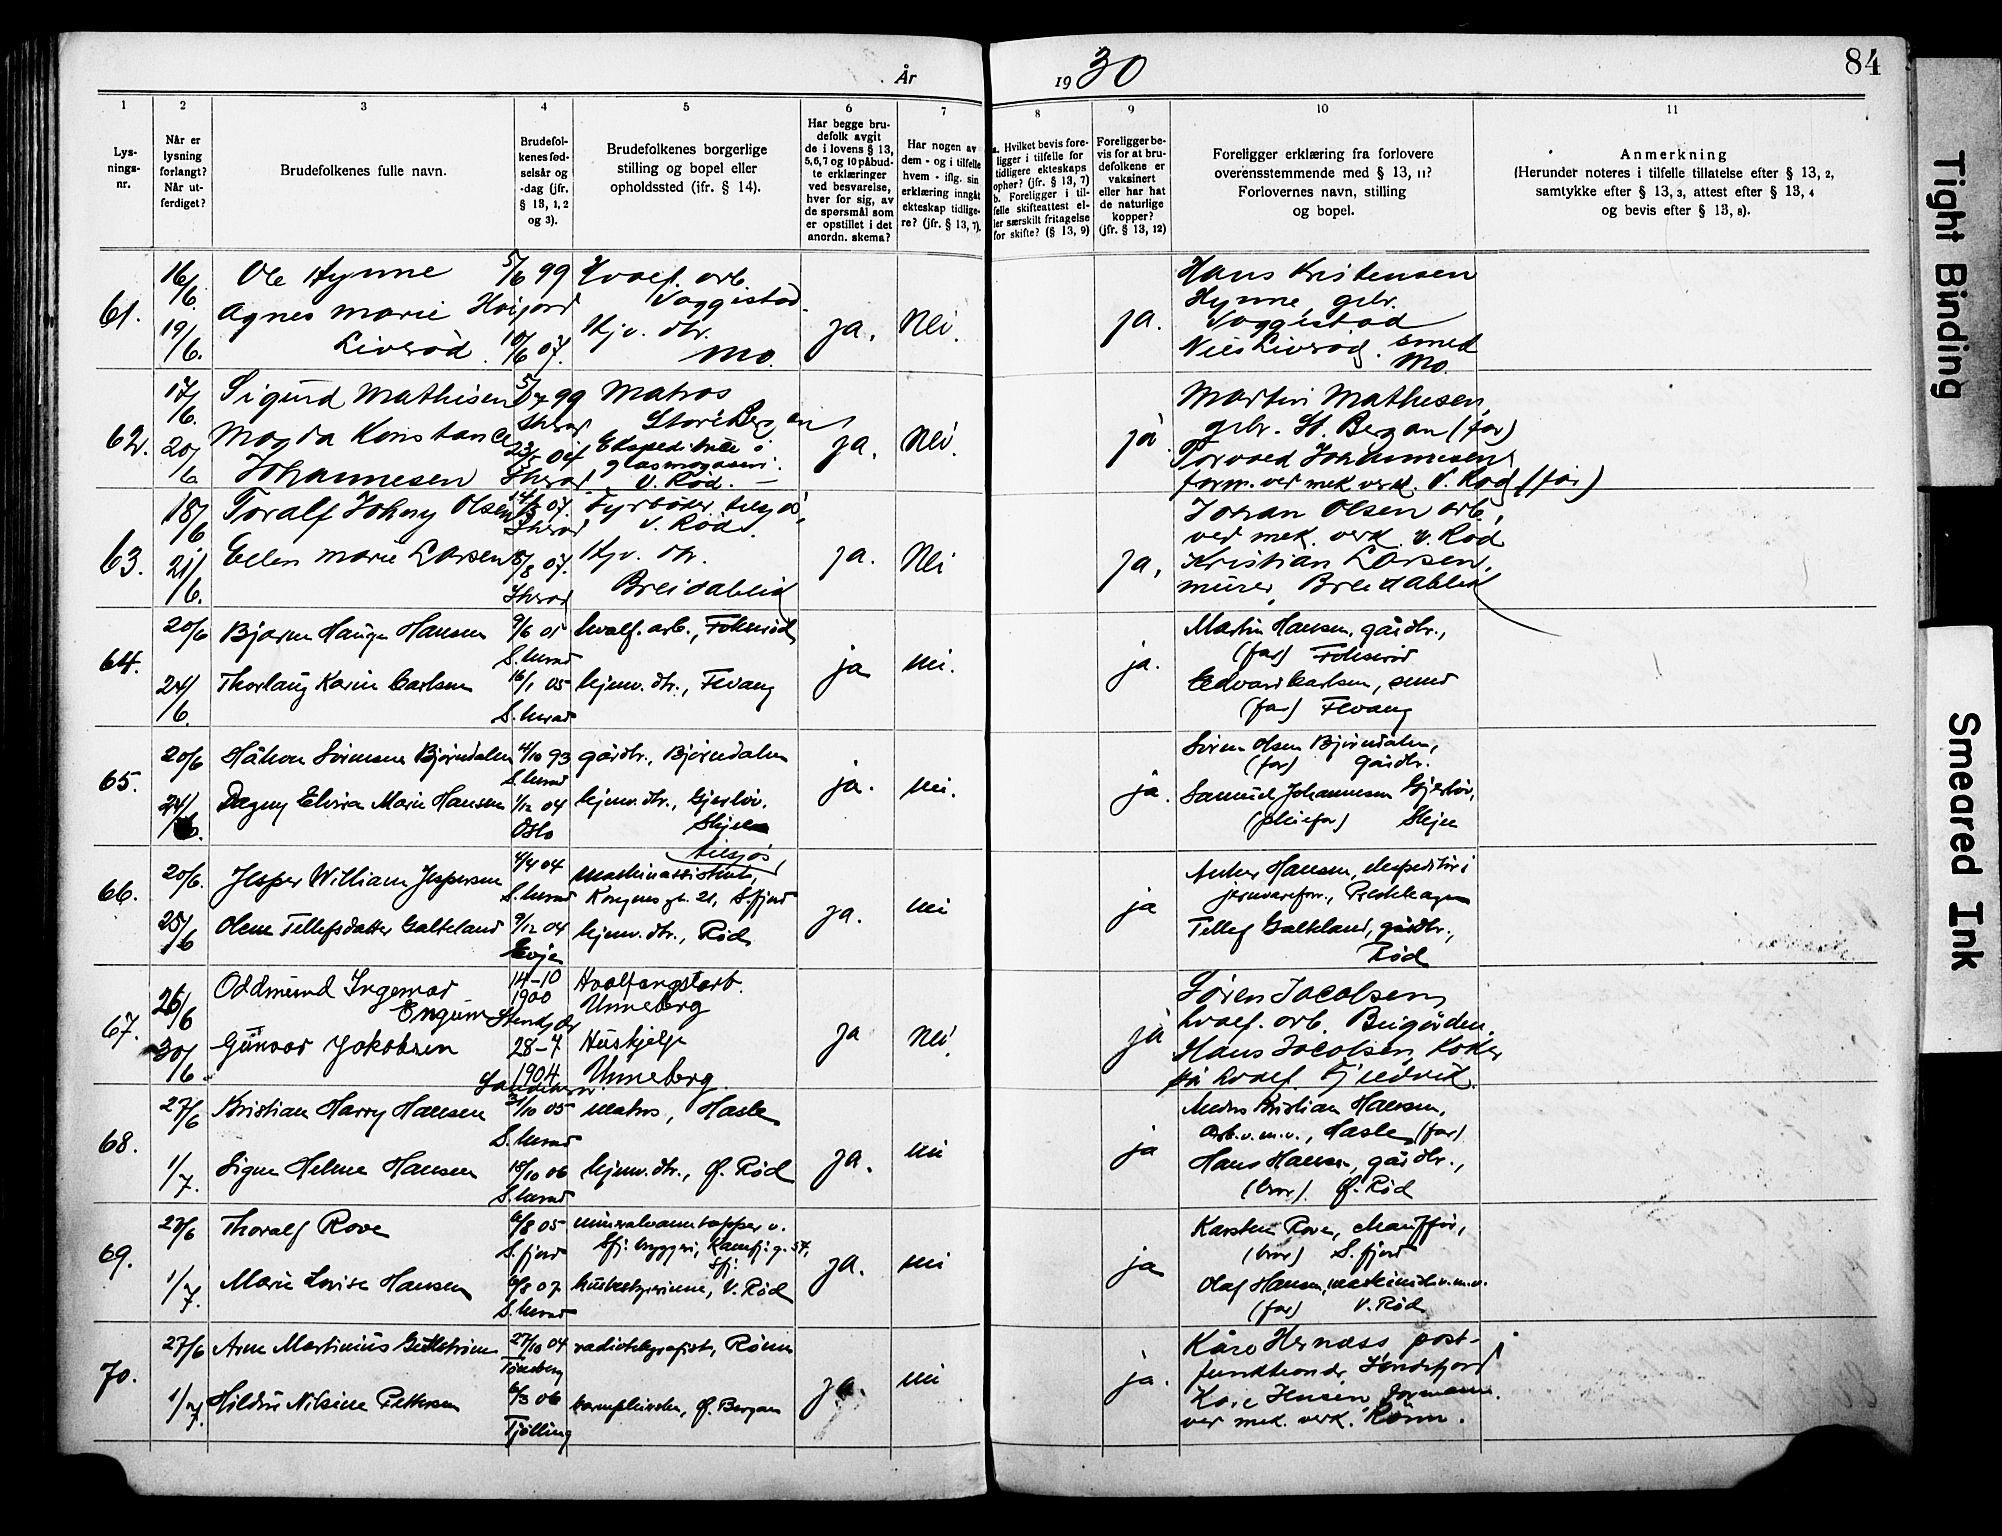 År
19 30
84
1
2
3
4
5
6
7
8
9
10
11
Lys-
nings-
nr.
Når er
lysning
forlangt?
Når ut-
ferdiget?
Brudefolkenes fulle navn.
Brudefol-
kenes fød-
selsår og
-dag (jfr.
§ 13, 1, 2
og 3).
Brudefolkenes borgerlige
stilling og bopel eller
opholdssted (ifr. § 14).
Har begge bru-
defolk avgit
de i lovens § 13,
5,6,7 og 10 påbud-
te erklæringer
ved besvarelse,
hver for sig, av
de spørsmål som
er opstillet i det
anordn. skema?
Har nogen av
dem - og i tilfelle
hvem - iflg. sin
erklæring inngåt
ekteskap tidlige-
re? (jfr. § 13, 7).
a. Hvilket bevis fore-
ligger i tilfelle for
tidligere ekteskaps
ophør? (jfr. § 13, 7)
b. Foreligger i til-
felle skifteattest el-
ler særskilt fritagelse
for skifte? (§ 13, 9)
Foreligger be-
vis for at bru-
defolkene er
vaksinert
eller har hat
de naturlige
kopper?
(jfr. § 13, 12)
Foreligger erklæring fra forlovere
overensstemmende med § 13, 11?
Forlovernes navn, stilling
og bopel.
Anmerkning
(Herunder noteres i tilfelle tillatelse efter § 13, 2,
samtykke efter § 13, 3, attest efter § 13, 4
og bevis efter § 13, 8).
61.
16/6.
19/6.
Ole Hynne
Agnes Marie Høijord
Liverød.
5/6 99
10/6 07.
Hvalf. arb.
Vaggestad.
Hjv. dtr.
Mo.
ja.
Nei.
ja.
Hans Kristensen
Hynne gbr.
Vaggestad
Nils Liverød. smed
Mo.
62.
17/6.
20/6
Sigurd Mathisen
Magda Konstance
Johannesen
5/7 99
Sherad
23/5 04
Sherad
Matros
Store Bergan
Ekspeditrice i
glasmagasin.
V. Rød.
ja.
Nei.
ja
Martin Mathisen,
gbr. St. Bergan (far)
Torvald Johannesen,
form. ved mek verk. V. Rød (far)
63.
18/6
21/6.
Toralf Johny Olsen
Ellen Marie Larsen
14/3 07.
Sherad
8/8 07.
Sherad
Fyrbøter tilsjøs,
V. Rød.
Hjv. dtr.
Breidablik
ja.
Nei
ja.
Johan Olsen arb.
ved mek. verk. V. Rød
Kristian Larsen,
murer, Breidablik
64.
20/6
24/6.
Bjarne Haugen Hansen
Thorlaug Karin Carlsen
9/6 01
S.herad
16/1 05
S.herad
hvalf. arb., Fokserød
hjemv. dtr., Fevang
ja
nei.
ja.
Martin Hansen, gårdbr.,
(far) Fokserød
Edvard Carlsen, smed
(far) Fevang
65.
20/6
24/6.
Håkon Sørensen Bjørndalen
Dagny Elvira Marie Hansen
4/10 93
S.herad
1/12 04
Oslo
gårdbr., Bjørndalen
hjemv. dtr., Gjerløv.
Skjee
ja.
nei.
ja.
Søren Olsen Bjørndalen,
(far) gårdbr.
Samuel Johannesen Gjerløv,
(pleiefar) Skjee
66.
20/6.
25/6
Jesper William Jespersen
Olene Tellefsdatter Galteland
4/4 04
S.herad
9/12 04
Evje
tilsjøs
maskinassistent,
Kongensgt. 21, S.fjord
hjemv. dtr., Rød
ja.
nei
ja
Anker Hansen, ekspeditør i
jernvareforr., Preståsen
Tellef Galteland, gårdbr.,
Rød
67.
26/6
30/6
Oddmund Ingemar
Engum
Gunvor Jakobsen
14-10
1900
Stenkjær
28-7
1904
Sandeherr.
Hvalfangstarb.
Unneberg
Hushjelp
Unneberg.
ja
Nei
ja
Søren Jacobsen,
hvalf. arb. Breigården.
Hans Jacobsen, Koker
på hvalf.
68.
27/6
1/7.
Kristian Harry Hansen
Signe Helene Hansen
31/10 05
S.herad
18/10 06
S.herad
matros, Hasle
hjemv. dtr., Ø. Rød
ja.
nei
ja
Anders Kristian Hansen,
Arb. v. m. v., Hasle (far)
Hans Hansen, gårdbr.,
(bror). Ø. Rød
69.
27/6
1/7.
Thoralf Rove
Marie Lovise Hansen
6/8 05
S.fjord
6/8 07
S.herad
mineralvanntapper v.
Sfj. bryggeri, Kamfj. g. 57,
Sfj.
husbestyrerinne, V. Rød
ja.
nei
ja
Karsten Rove, chauffør,
(bror) S.fjord
Olaf Hansen, maskinarb. v. m. v.
(far) V. Rød
70.
27/6
1/7.
Arne Martinius Guttstrøm
Hildur Nilsine Pettersen
27/10 04
Tønsberg
6/3 06
Tjølling
radiotelegrafist, Rønn
barnepleierske, Ø. Bergan
ja.
nei
ja.
Kåre Hernæss post-
funksjonær, Sandefjord
Kåre Jensen, formann
ved mek. verk. Rønn.
Tight Binding
Smeared Ink